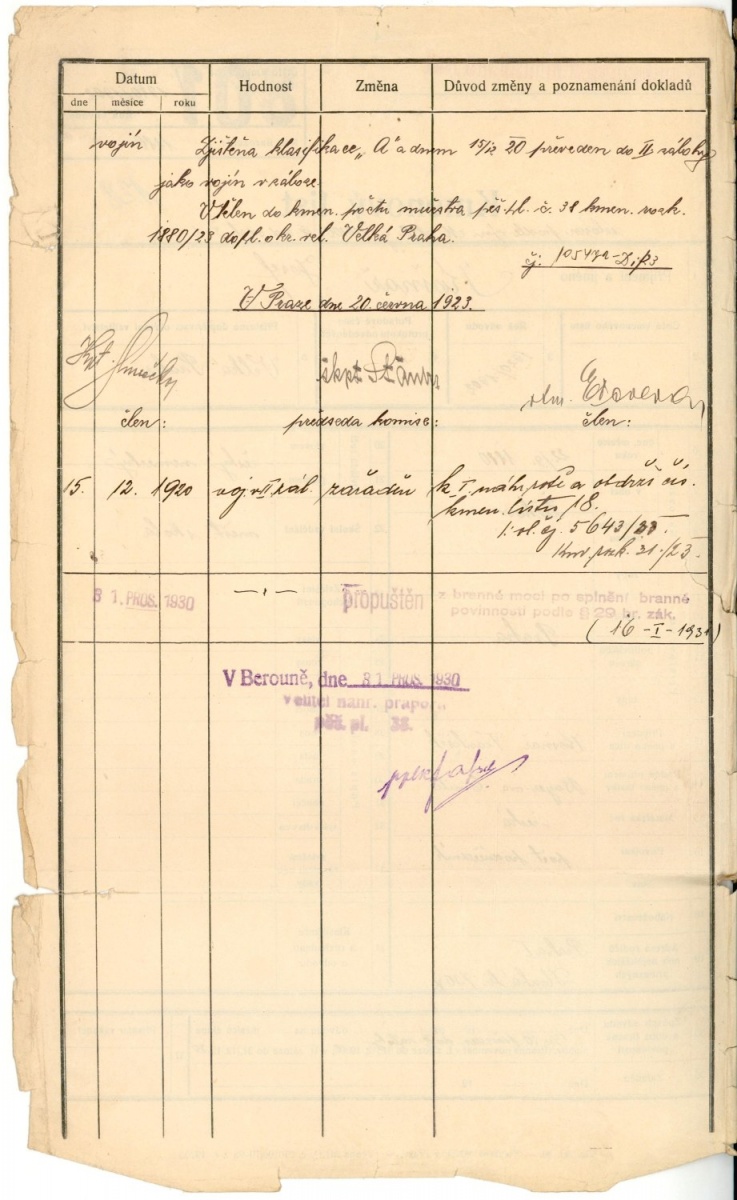 Datum Hodnost Změna Důvod změny a poznamenání dokladů
dne měsíce roku
vojín Zjištěna klasifikace „A“ a dnem 15/12 20 převeden do II zálohy
jako vojín v záloze.
Vtělen do kmen. počtu mužstva pěš. pl. č. 38 kmen. rok.
1880/23 dopl. okr. vel. Velká Praha.
čj. 105472-D.i/23
V Praze dne 20. června 1923.
škpt.
člen: předseda komise: člen:
15. 12. 1920 voj. v II. zál. zařáděn k I. náhr. rotě a obdrží čís.
kmen. listu 18.
čj. 5643/23
31./23.
31. PROS. 1930 propuštěn z branné moci po splnění branné
povinnosti podle § 29 br. zák.
(16-I-1931)
V Berouně, dne 31. PROS. 1930
Velitel náhr. praporu
pěš. pl. 38.